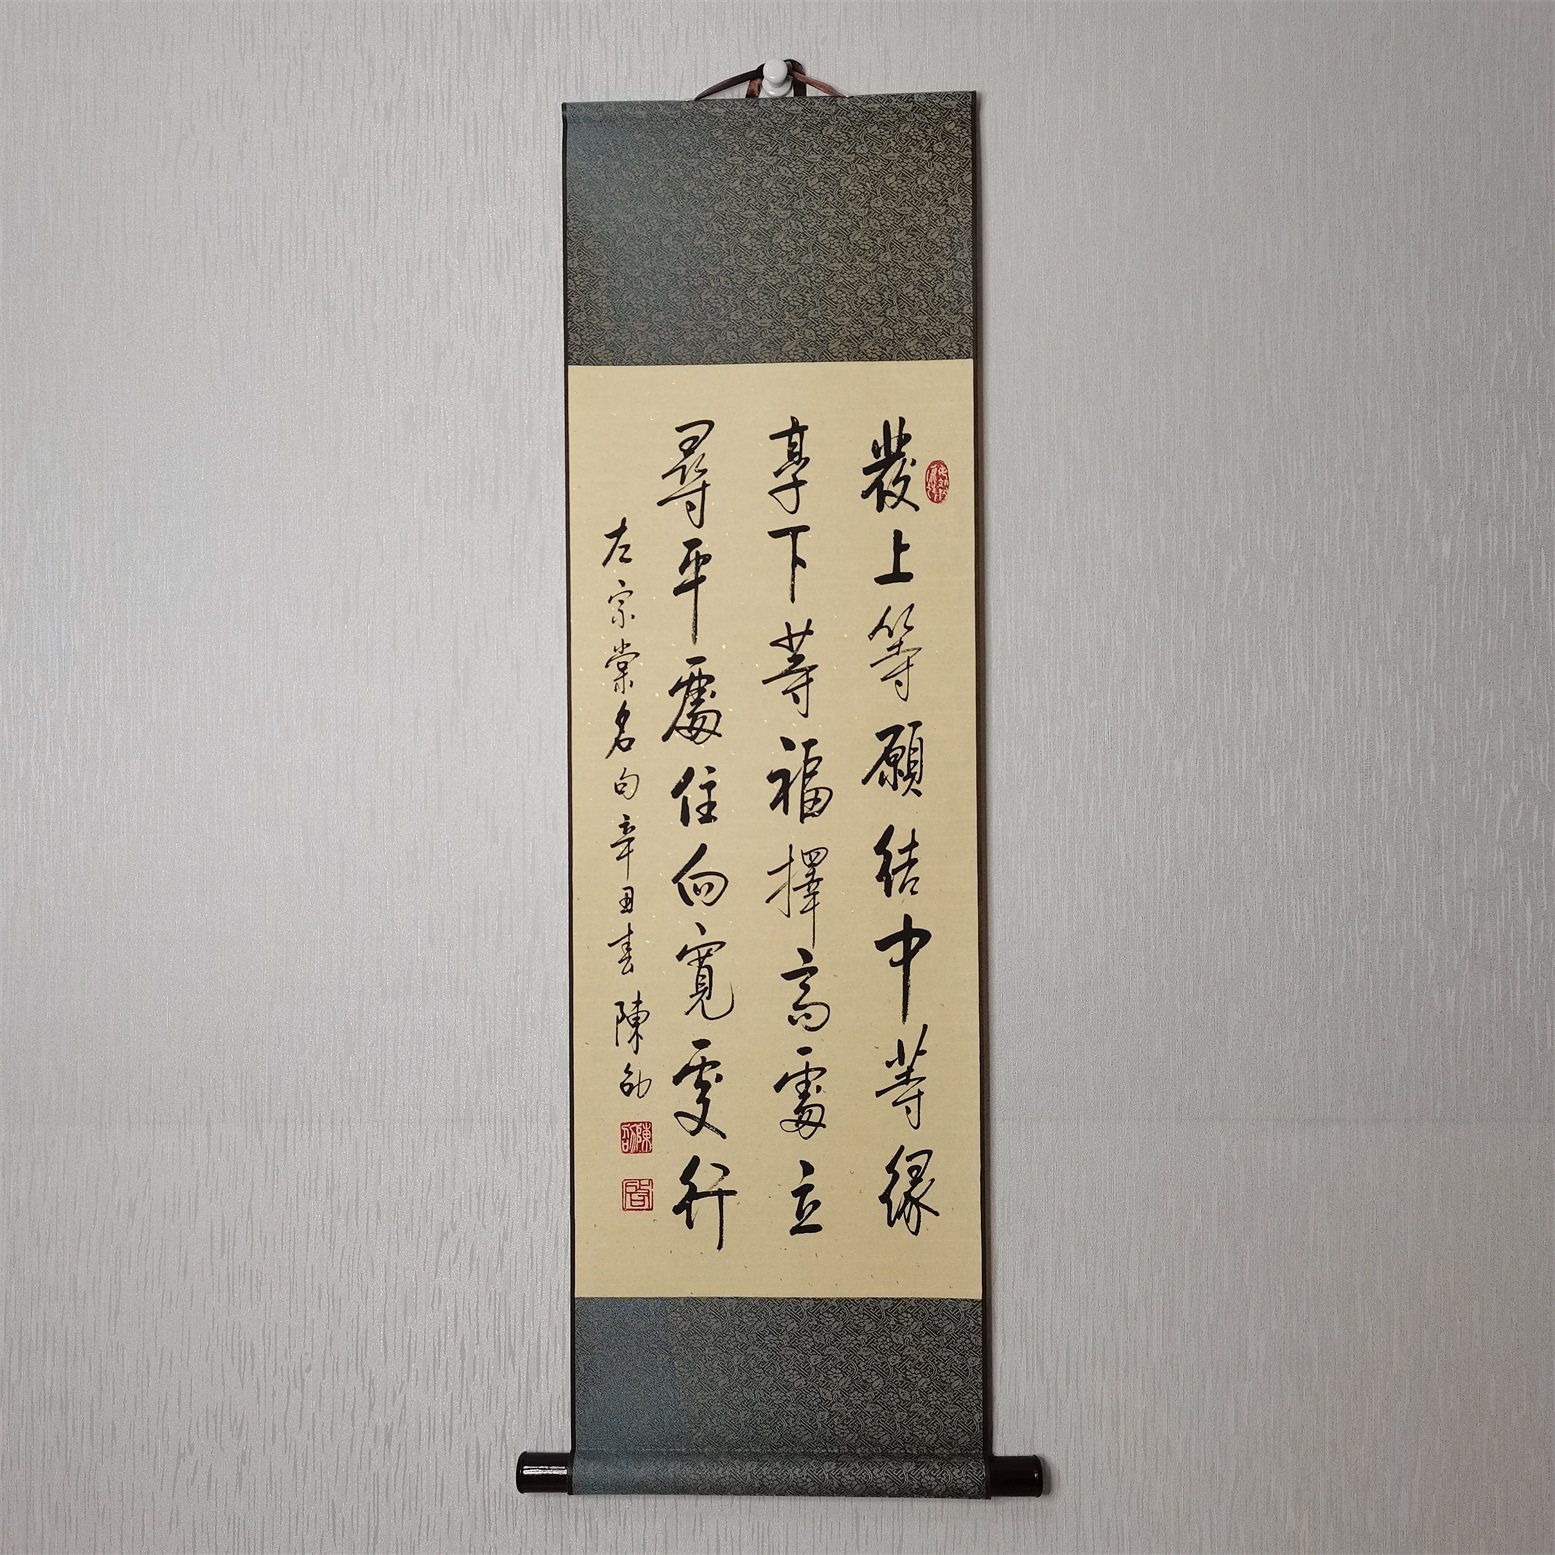 發上等願結中等緣
享下等福擇高處立
尋平處住向寬處行
左宗棠名句辛丑春陳劭